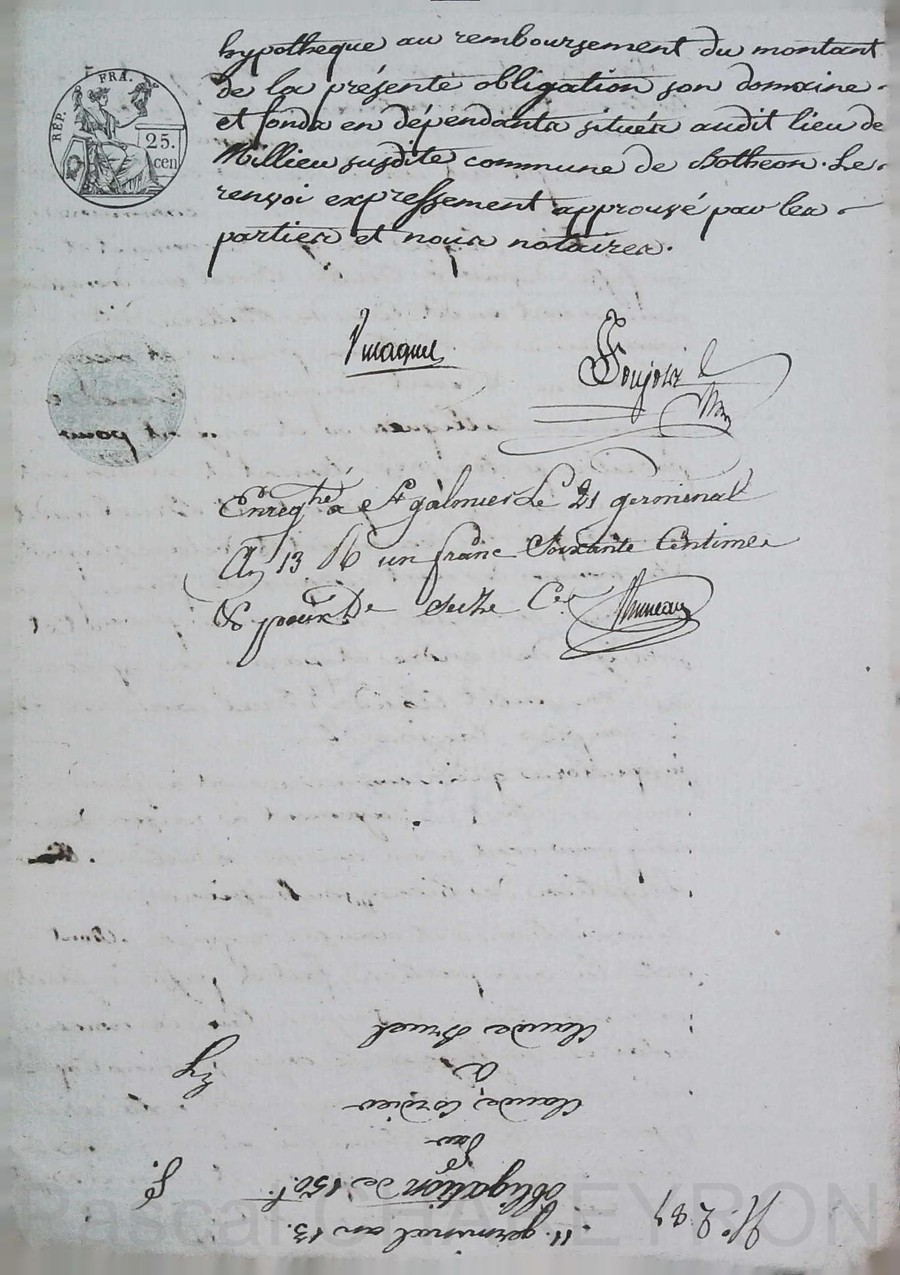 REP. FRA.
25.
cen
hypotheque au remboursement du montant
de la présente obligation son domaine
et fonds en dépendants situés audit lieu de
Millieu susdite commune de Botheon. Le
renvoi expressement approuvé par les
parties et nous notaires.
Enregtré à St galmier Le 21 germinal
An 13 un franc Soixante Centimes
& pour Dme seize Ces
N°. 289
11 germinal an 13.
obligation de 150 f.
Par
Claude Cordier
à
Claude Bruel
Pascal CHAREYRON